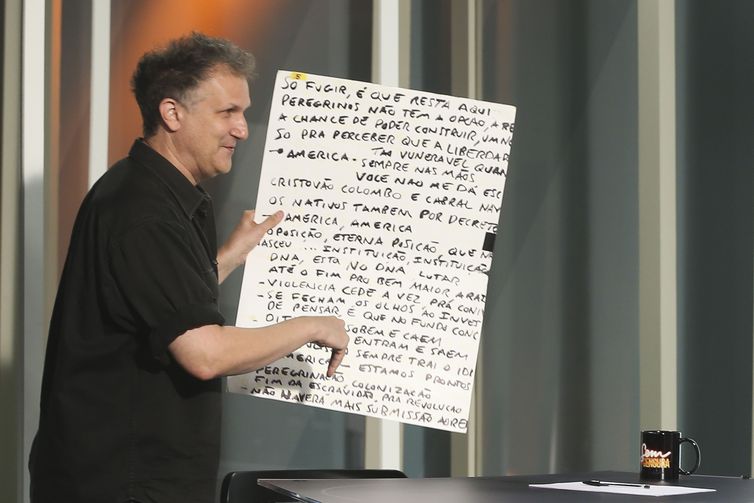 5
SO FUGIR, É QUE RESTA AQUI
PEREGRINOS NÃO TEM A OPÇÃO, A RE
A CHANCE DE PODER CONSTRUIR, UM NO
SO PRA PERCEBER QUE A LIBERDAD
TÃO VUNERAVEL QUAN
AMERICA - SEMPRE NAS MÃOS
VOCE NÃO ME DÁ ESC
CRISTOVÃO COLOMBO E CABRAL NAV
OS NATIVOS TAMBEM POR DECRETO
- AMERICA, AMERICA
OPOSIÇÃO, ETERNA POSIÇÃO, QUE NA
NASCEU ... INSTITUIÇÃO, INSTITUIÇÃO
DNA, ESTA NO DNA LUTAR
ATÉ O FIM PRO BEM MAIOR A RAI
- VIOLENCIA CEDE A VEZ, PRÁ CONI
- SE FECHAM OS OLHOS AO INVES
DE PENSAR É QUE NO FUNDO CONC
SOBEM E CAEM
ENTRAM E SAEM
SEMPRE TRAI O IDE
AMERICA - ESTAMOS PRONTOS
PEREGRINAÇÃO COLONIZAÇÃO
FIM DA ESCRAVIDÃO, PRA REVOLUÇÃO
- NÃO HAVERA MAIS SUBMISSÃO AO REI
Sem
CENSURA